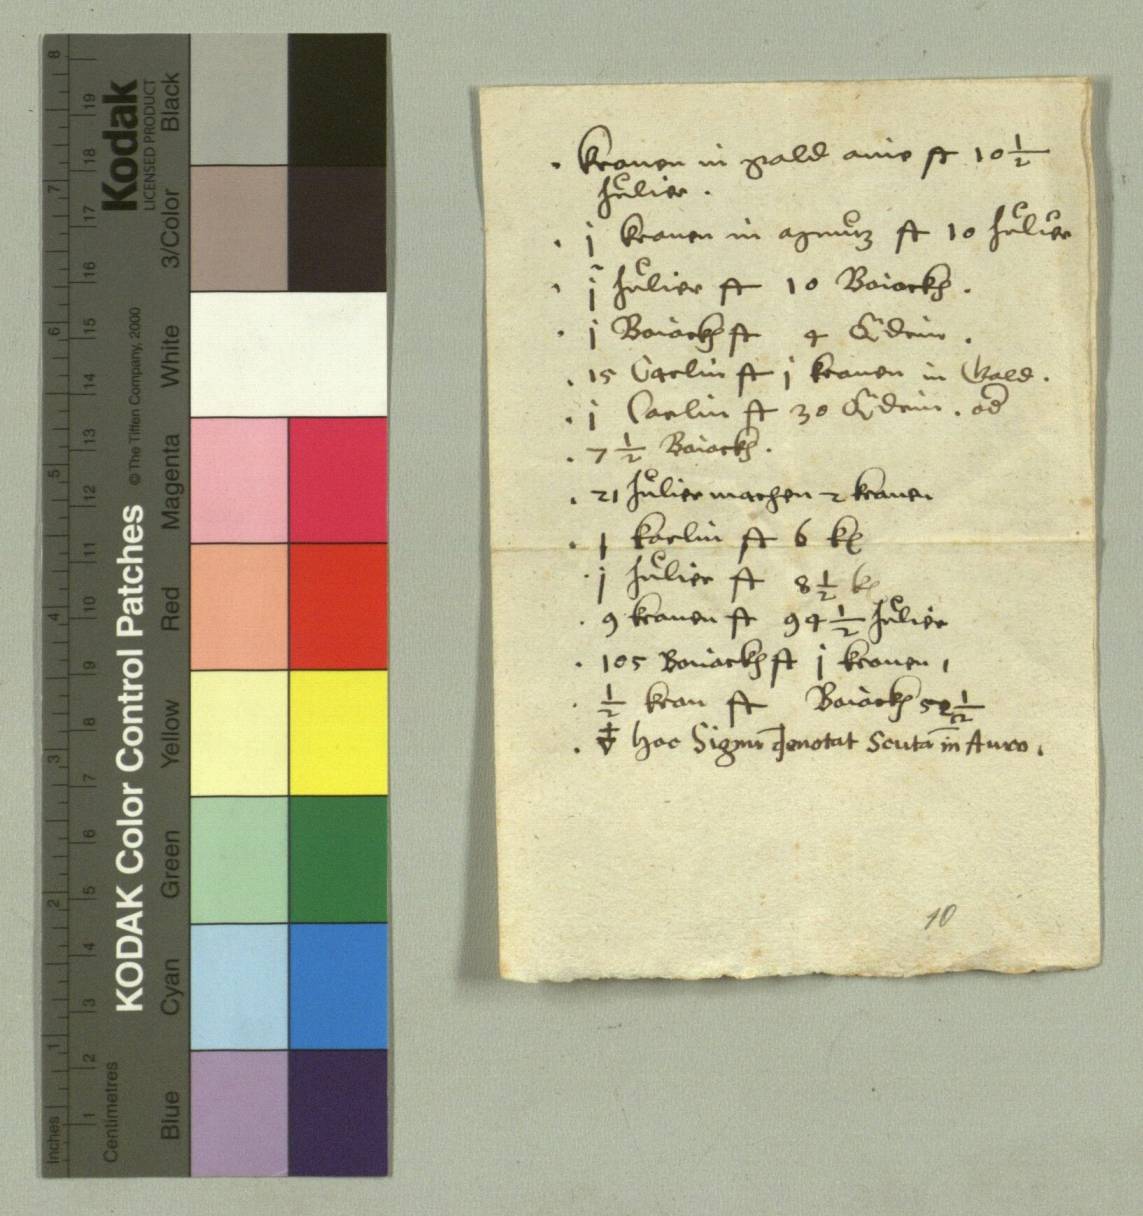 8 7 6 5 4 3 2 1 Inches
19 18 17 16 15 14 13 12 11 10 9 8 7 6 5 4 3 2 1 Centimetres
Kodak
LICENSED PRODUCT
KODAK Color Control Patches © The Tiffen Company, 2000
Black
3/Color
White
Magenta
Red
Yellow
Green
Cyan
Blue
. kronen in gold ft 10 1/2
Julier .
. j kronen in ft 10 Julier
. j Julier ft 10 Baiockh .
. j Baiockh ft 4 Qdrin .
. 15 Carlin ft j kronen in Gold .
. j Carlin ft 30 Qdrin . od
. 7 1/2 Baiockh .
. 21 Julier machen 2 kronen
. j karlin ft 6 kr
. j Julier ft 8 1/2 kr
. 9 kronen ft 94 1/2 Julier
. 105 Baiockh ft j kronen
. 1/2 kron ft Baiockh 52 1/2
. hoc Signu denotat Scuta in Auro .
10